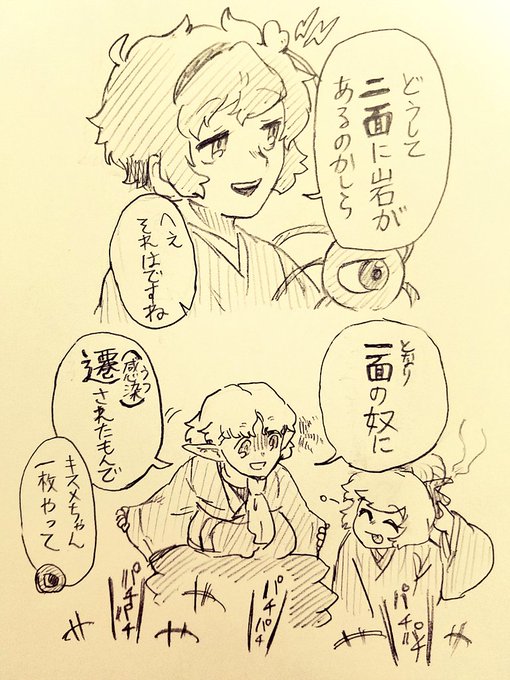 どうして
二面に岩が
あるのかしら
へえ
それはですね
となり
一面の奴に
うつ
(感染)
遷されたもんで
キスメちゃん
一枚やって
パチパチ
パチパチ
パチパチ